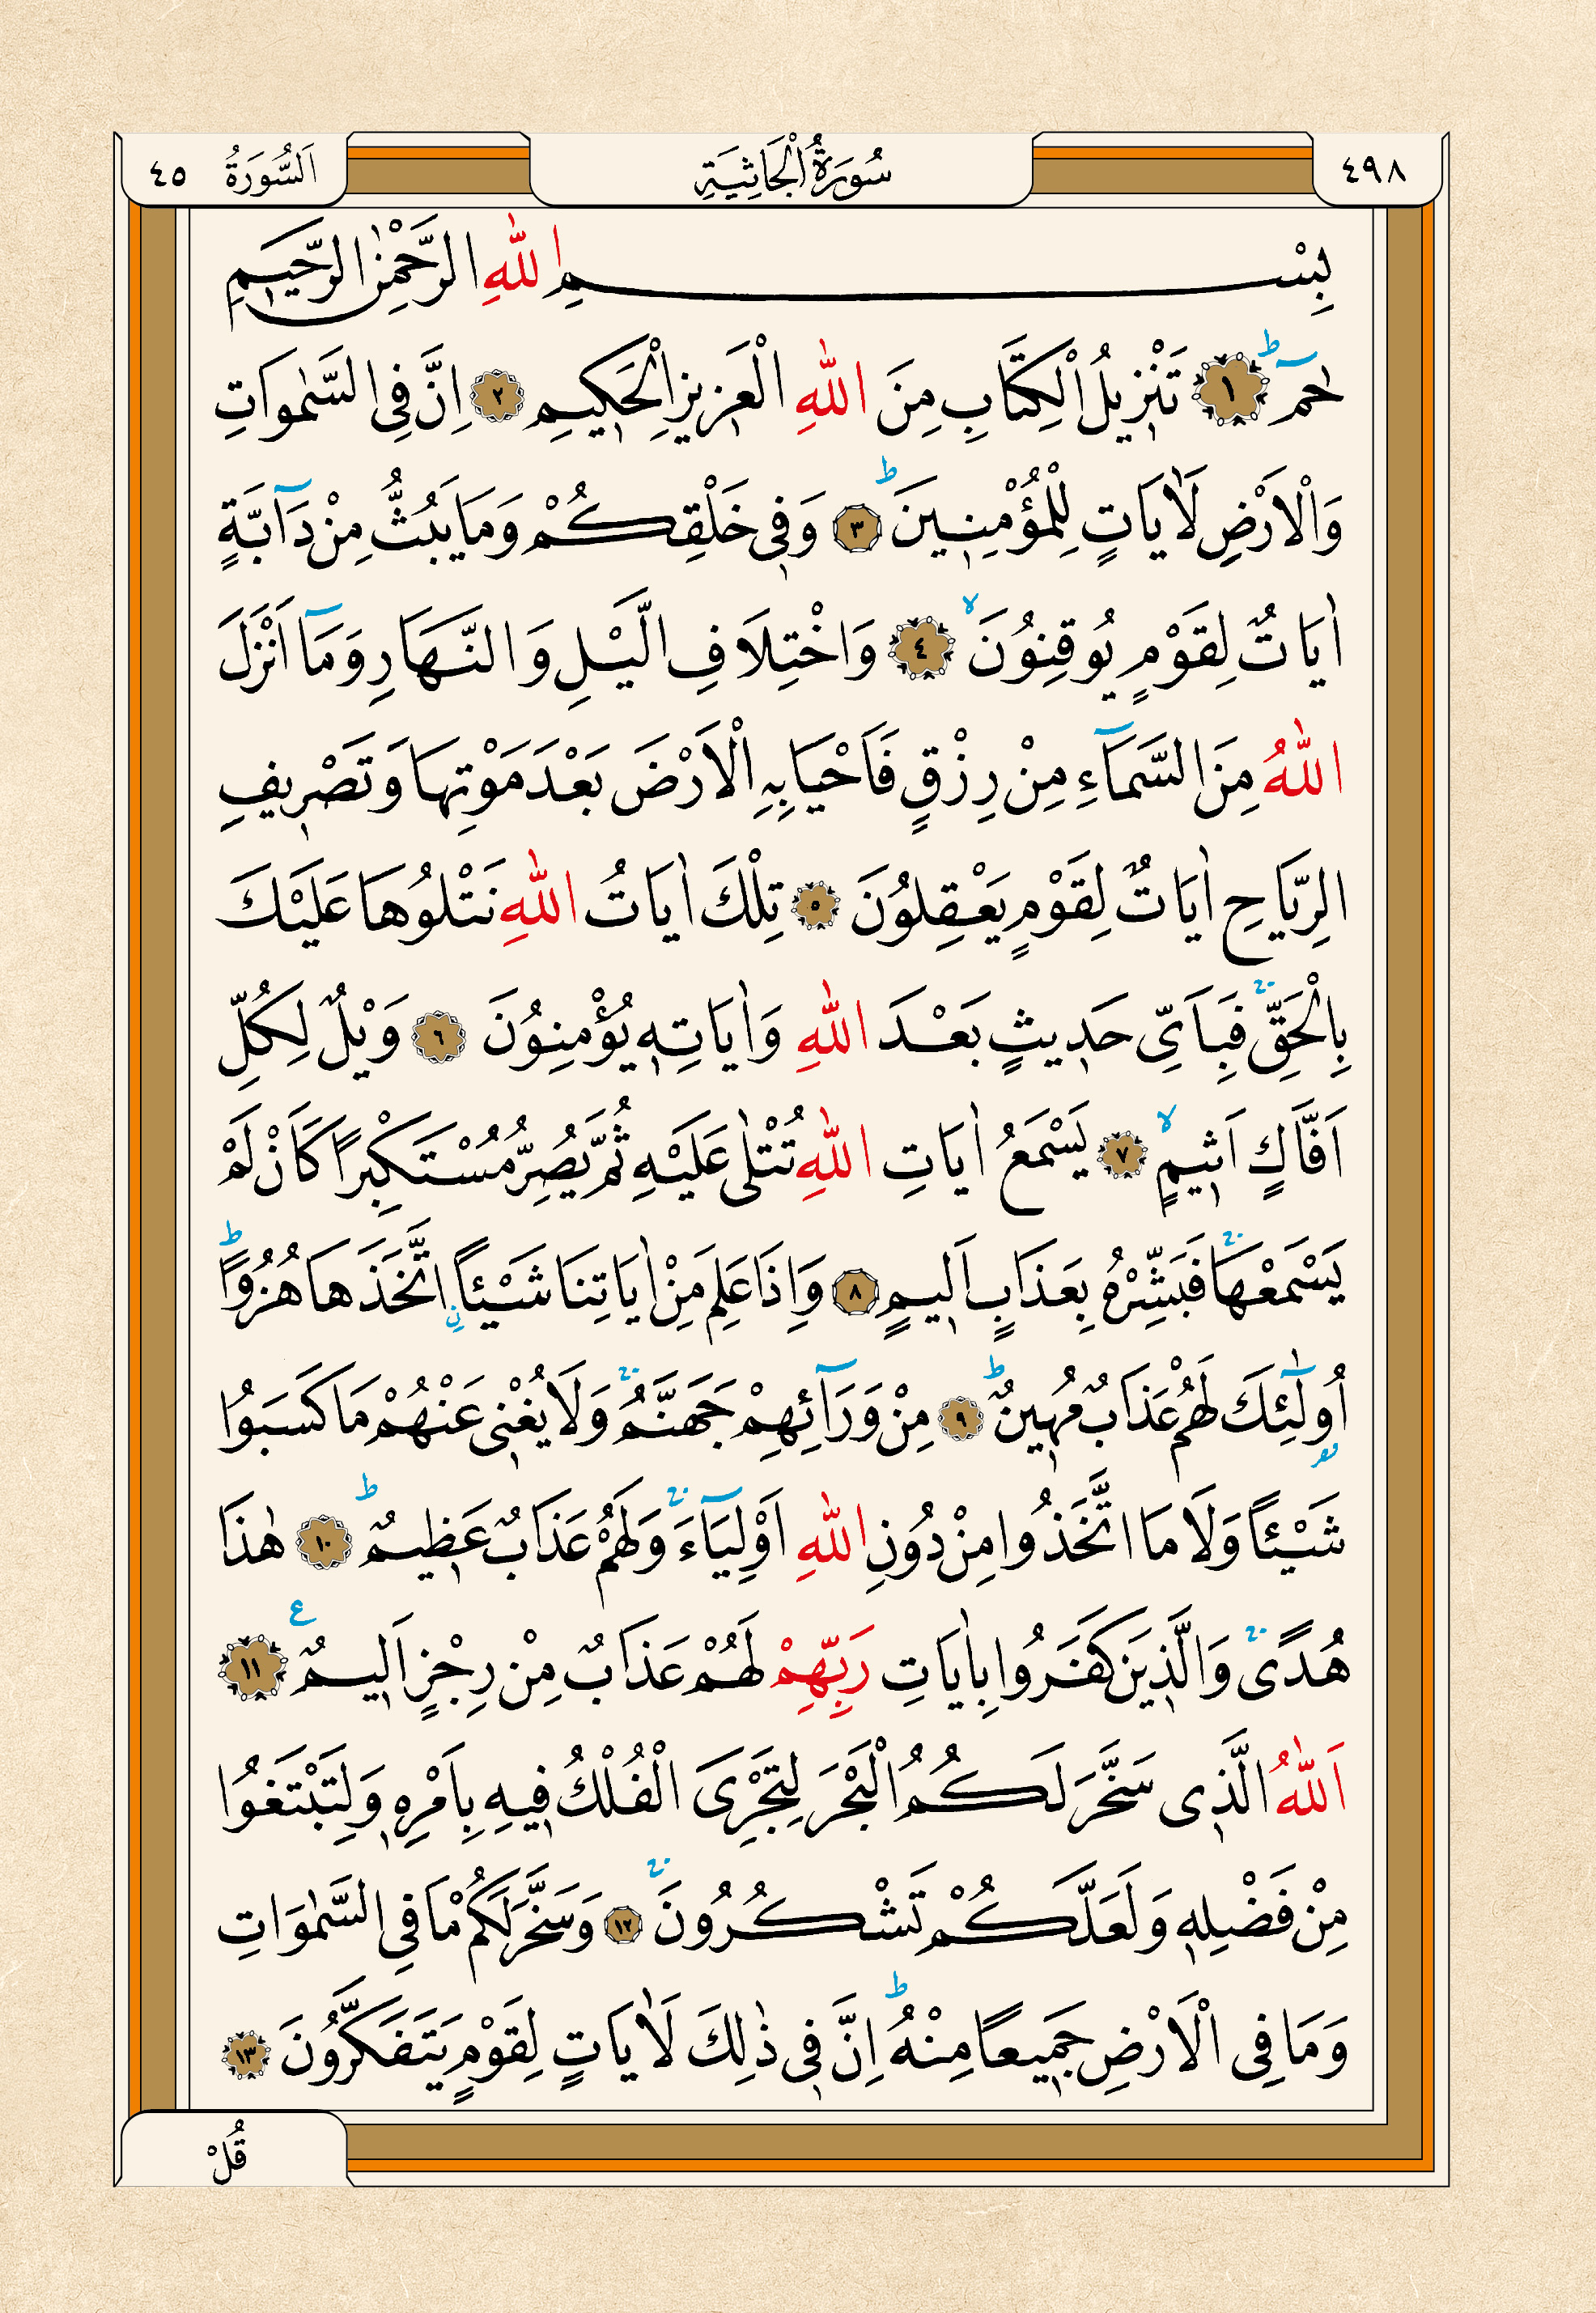 ٤٩٨ سُورَةُ الْجَاثِيَةِ اَلسُّورَةُ ٤٥
بِسْمِ اللّٰهِ الرَّحْمٰنِ الرَّحٖيمِ
حٰمٓ ط ١ تَنْزٖيلُ الْكِتَابِ مِنَ اللّٰهِ الْعَزٖيزِ الْحَكٖيمِ ٢ اِنَّ فِى السَّمٰوَاتِ
وَالْاَرْضِ لَاٰيَاتٍ لِلْمُؤْمِنٖينَ ط ٣ وَفٖى خَلْقِكُمْ وَمَا يَبُثُّ مِنْ دَٓابَّةٍ
اٰيَاتٌ لِقَوْمٍ يُوقِنُونَ لا ٤ وَاخْتِلَافِ الَّيْلِ وَالنَّهَارِ وَمَٓا اَنْزَلَ
اللّٰهُ مِنَ السَّمَٓاءِ مِنْ رِزْقٍ فَاَحْيَا بِهِ الْاَرْضَ بَعْدَ مَوْتِهَا وَتَصْرٖيفِ
الرِّيَاحِ اٰيَاتٌ لِقَوْمٍ يَعْقِلُونَ ٥ تِلْكَ اٰيَاتُ اللّٰهِ نَتْلُوهَا عَلَيْكَ
بِالْحَقِّۚ فَبِاَىِّ حَدٖيثٍ بَعْدَ اللّٰهِ وَاٰيَاتِهٖ يُؤْمِنُونَ ٦ وَيْلٌ لِكُلِّ
اَفَّاكٍ اَثٖيمٍ لا ٧ يَسْمَعُ اٰيَاتِ اللّٰهِ تُتْلٰى عَلَيْهِ ثُمَّ يُصِرُّ مُسْتَكْبِرًا كَاَنْ لَمْ
يَسْمَعْهَاۚ فَبَشِّرْهُ بِعَذَابٍ اَلٖيمٍ ٨ وَاِذَا عَلِمَ مِنْ اٰيَاتِنَا شَيْئًا نِ اتَّخَذَهَا هُزُوًا ط
اُولٰٓئِكَ لَهُمْ عَذَابٌ مُهٖينٌ ط ٩ مِنْ وَرَٓائِهِمْ جَهَنَّمُۚ وَلَا يُغْنٖى عَنْهُمْ مَا كَسَبُوا
شَيْئًا وَلَا مَا اتَّخَذُوا مِنْ دُونِ اللّٰهِ اَوْلِيَٓاءَۚ وَلَهُمْ عَذَابٌ عَظٖيمٌ ط ١٠ هٰذَا
هُدًىۚ وَالَّذٖينَ كَفَرُوا بِاٰيَاتِ رَبِّهِمْ لَهُمْ عَذَابٌ مِنْ رِجْزٍ اَلٖيمٌ ع ١١
اَللّٰهُ الَّذٖى سَخَّرَ لَكُمُ الْبَحْرَ لِتَجْرِىَ الْفُلْكُ فٖيهِ بِاَمْرِهٖ وَلِتَبْتَغُوا
مِنْ فَضْلِهٖ وَلَعَلَّكُمْ تَشْكُرُونَۚ ١٢ وَسَخَّرَ لَكُمْ مَا فِى السَّمٰوَاتِ
وَمَا فِى الْاَرْضِ جَمٖيعًا مِنْهُ ط اِنَّ فٖى ذٰلِكَ لَاٰيَاتٍ لِقَوْمٍ يَتَفَكَّرُونَ ١٣
قُلْ